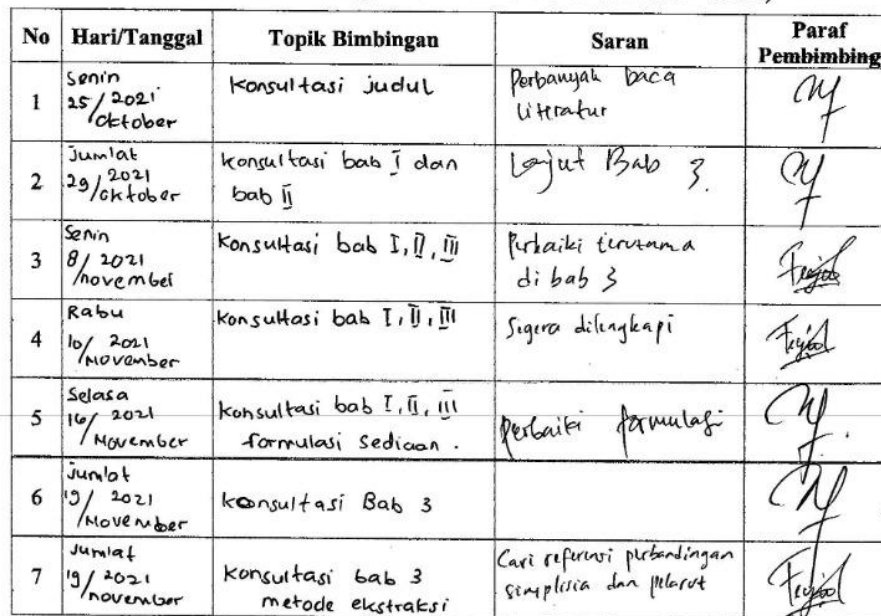 No Hari/Tanggal Topik Bimbingan Saran Paraf Pembimbing
1 Senin 25/2021 Oktober Konsultasi judul Perbanyak baca literatur
2 Jumlat 29/2021 Oktober konsultasi bab I dan bab II Lanjut Bab 3.
3 Senin 8/2021 november Konsultasi bab I, II, III Perbaiki terutama di bab 3
4 Rabu 10/2021 November Konsultasi bab I, II, III Segera dilengkapi
5 Selasa 16/2021 November Konsultasi bab I, II, III formulasi Sediaan. Perbaiki formulasi
6 Jumlat 19/2021 November konsultasi Bab 3
7 Jumlat 19/2021 november Konsultasi bab 3 metode ekstraksi Cari referensi perbandingan simplisia dan pelarut